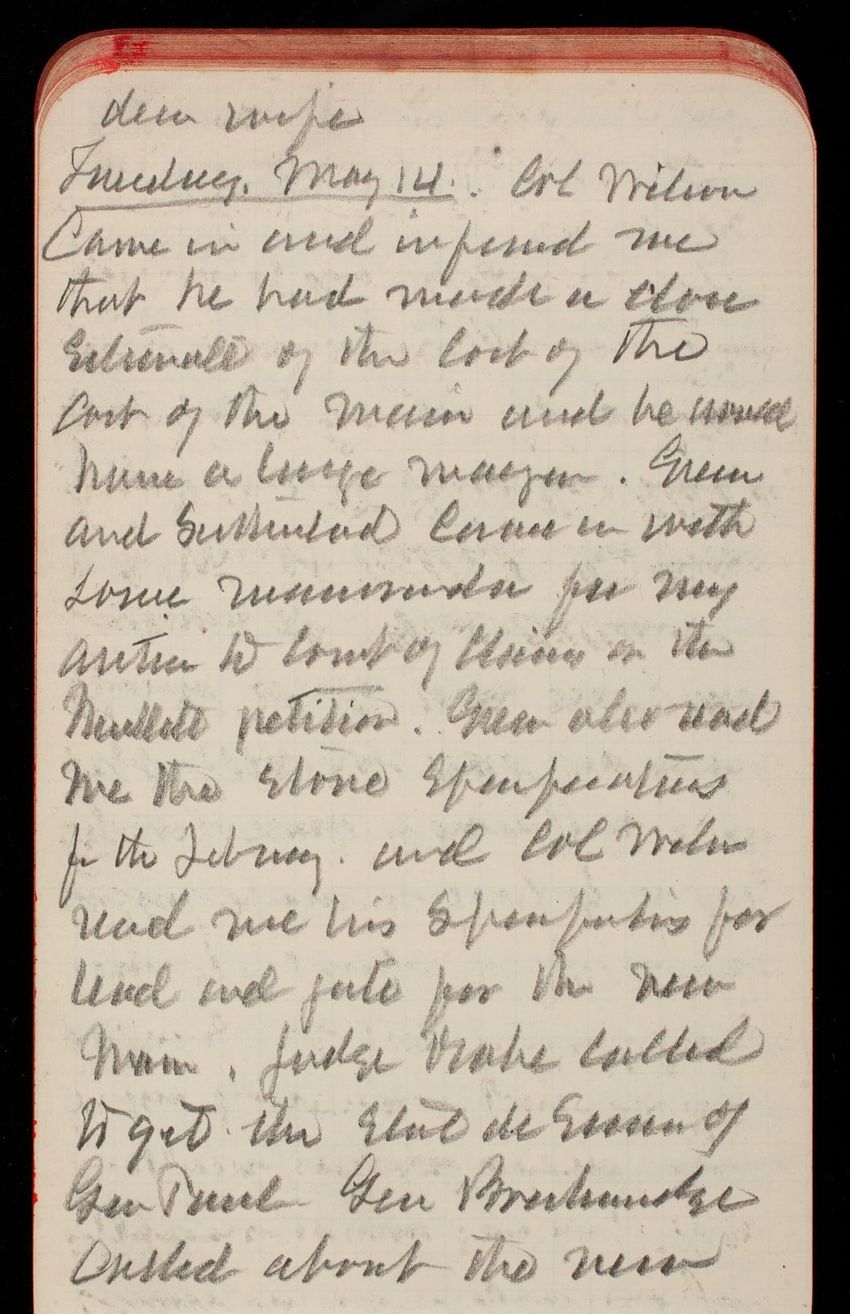 dear wife
Tuesday. May 14. Col Wilson
Came in and infomed me
that he had made a close
Estimate of the Cost of the
Cost of the main and he would
have a large margin. Green
and Sutherland Came in with
some memoranda for my
action to Court of Claims on the
Mullett petition. Green also read
me the stone Specifications
for the Library. and Col Wilson
read me his Specifications for
lead and jute for the new
Main. Judge Drake called
to get the of
Gen Gen Breckenridge
Called about the new